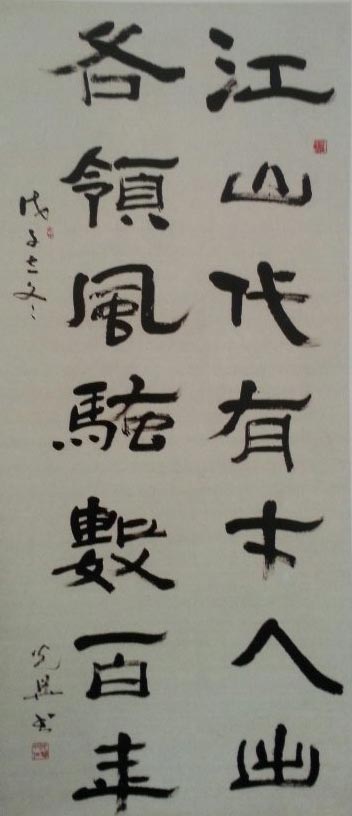 江山代有才人出
各領風騷數百年
戊子
书